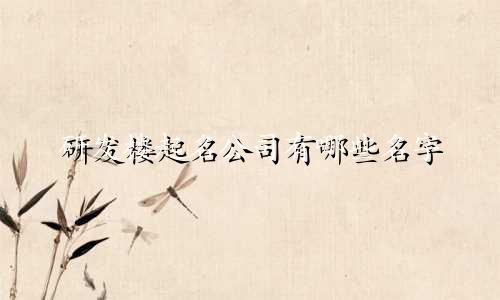 研发楼起名公司有哪些名字